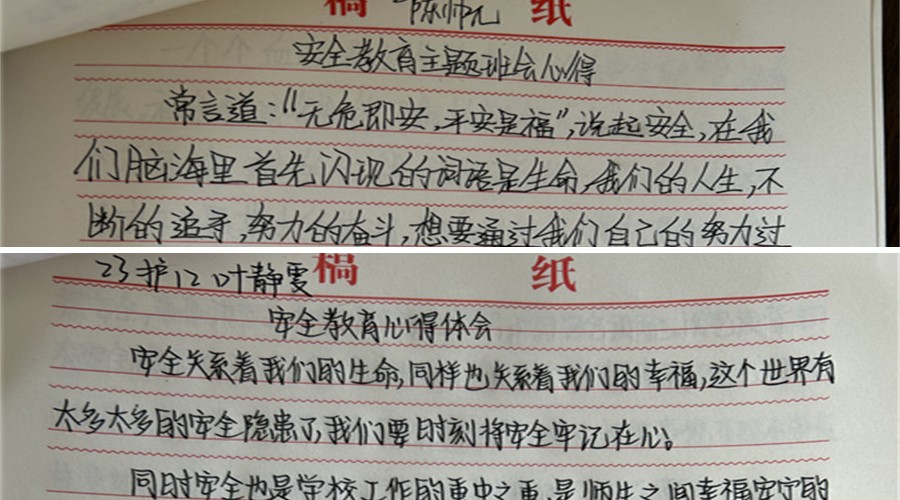 稿 纸
安全教育主题班会心得
常言道:"无危即安,平安是福",说起安全,在我
们脑海里首先闪现的词语是生命,我们的人生,不
断的追寻,努力的奋斗,想要通过我们自己的努力过
稿 纸
23护12 叶静雯
安全教育心得体会
安全关系着我们的生命,同样也关系着我们的幸福,这个世界有
太多太多的安全隐患了,我们要时刻将安全牢记在心。
同时安全也是学校工作的重中之重,是师生之间幸福安定的